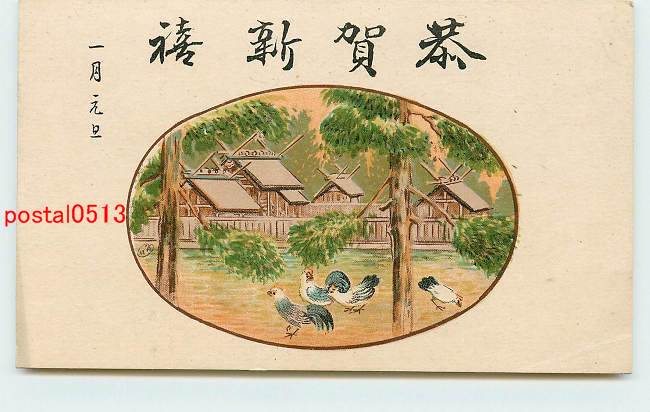 恭賀新禧
一月元旦
postal0513